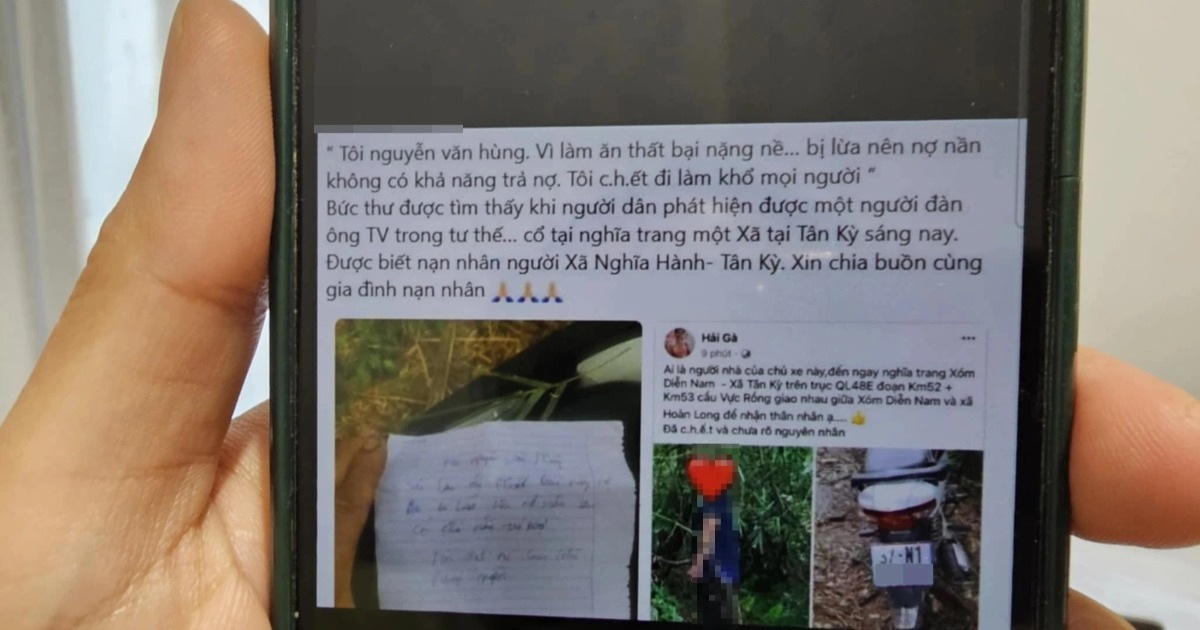 “ Tôi nguyễn văn hùng. Vì làm ăn thất bại nặng nề... bị lừa nên nợ nần
không có khả năng trả nợ. Tôi c.h.ết đi làm khổ mọi người “
Bức thư được tìm thấy khi người dân phát hiện được một người đàn
ông TV trong tư thế... cổ tại nghĩa trang một Xã tại Tân Kỳ sáng nay.
Được biết nạn nhân người Xã Nghĩa Hành- Tân Kỳ. Xin chia buồn cùng
gia đình nạn nhân 🙏🙏🙏
Hải Gà
9 phút
Ai là người nhà của chủ xe này,đến ngay nghĩa trang Xóm
Diễn Nam - Xã Tân Kỳ trên trục QL48E đoạn Km52 +
Km53 cầu Vực Rồng giao nhau giữa Xóm Diễn Nam và xã
Hoàn Long để nhận thân nhân ạ.... 👍
Đã c.h.ế.t và chưa rõ nguyên nhân
37-N1